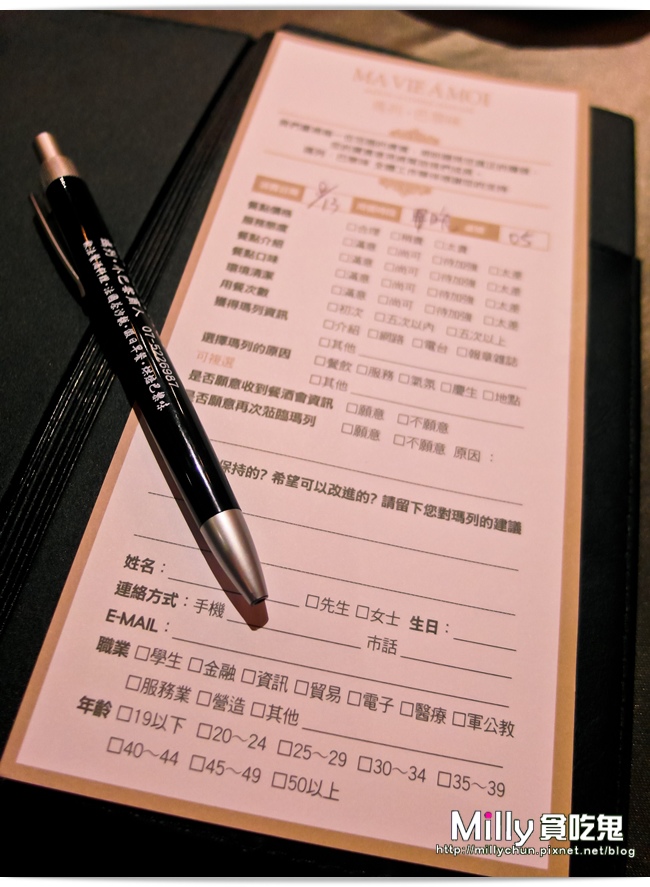 MA VIE A MOI
8/13
05
餐點價格 □合理 □稍貴 □太貴
服務態度 □滿意 □尚可 □待加強 □太差
餐點介紹 □滿意 □尚可 □待加強 □太差
餐點口味 □滿意 □尚可 □待加強 □太差
環境清潔 □滿意 □尚可 □待加強 □太差
用餐次數 □初次 □五次以內 □五次以上
獲得瑪列資訊 □介紹 □網路 □電台 □報章雜誌
□其他
選擇瑪列的原因 □餐飲 □服務 □氣氛 □慶生 □地點
可複選 □其他
是否願意收到餐酒會資訊 □願意 □不願意
是否願意再次蒞臨瑪列 □願意 □不願意 原因：
保持的? 希望可以改進的? 請留下您對瑪列的建議
姓名： □先生 □女士 生日：
連絡方式：手機 市話
E-MAIL：
職業 □學生 □金融 □資訊 □貿易 □電子 □醫療 □軍公教
□服務業 □營造 □其他
年齡 □19以下 □20～24 □25～29 □30～34 □35～39
□40～44 □45～49 □50以上
07-5226987
Milly 貪吃鬼
http://millychun.pixnet.net/blog